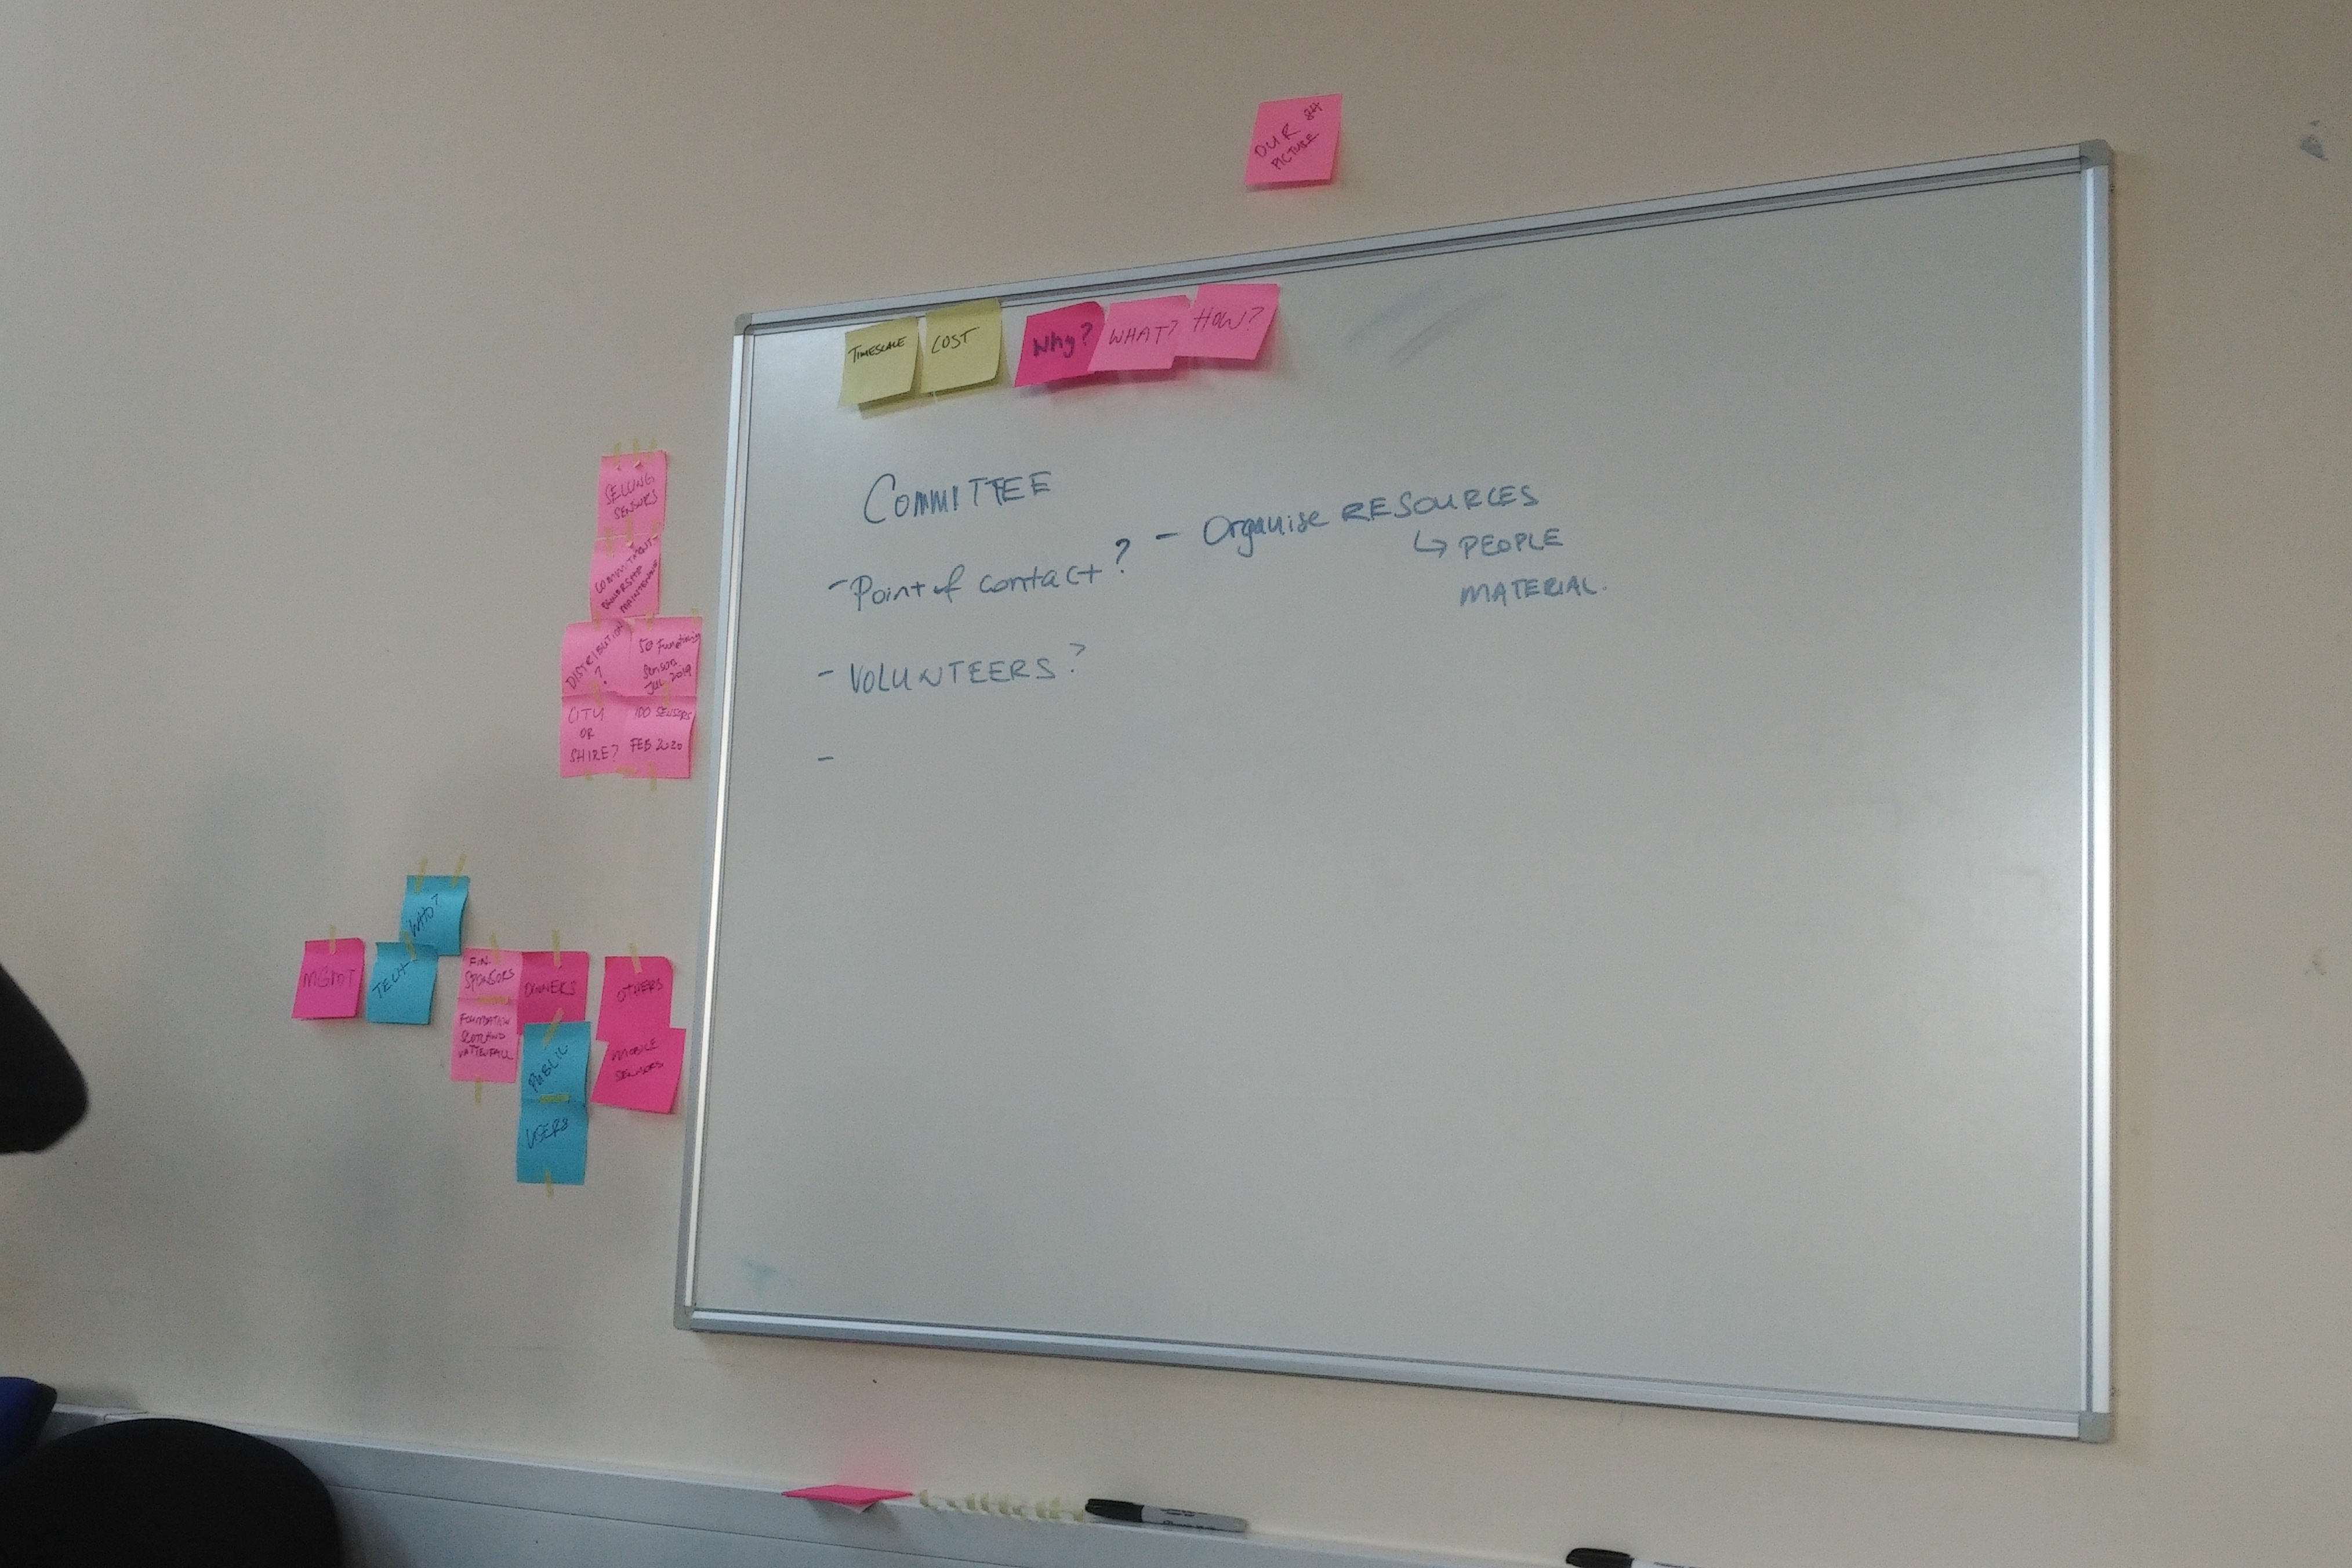 OUR
PICTURE
TIMESCALE
COST
Why?
WHAT?
HOW?
COMMITTEE
- Point of contact?
- VOLUNTEERS?
-
- Organise RESOURCES
↳ PEOPLE
MATERIAL.
SELLING
SENSORS
COMMITMENT
OWNERSHIP
MAINTENANCE
DISTRIBUTION
?
50 Functioning
Sensors
2019
CITY
OR
SHIRE?
100 SENSORS
FEB 2020
WHO?
MGMT
TECH
FIN.
SPONSORS
FOUNDATION
SCOTLAND
VATTENFALL
OWNERS
PUBLIC
USERS
OTHERS
MOBILE
SENSORS